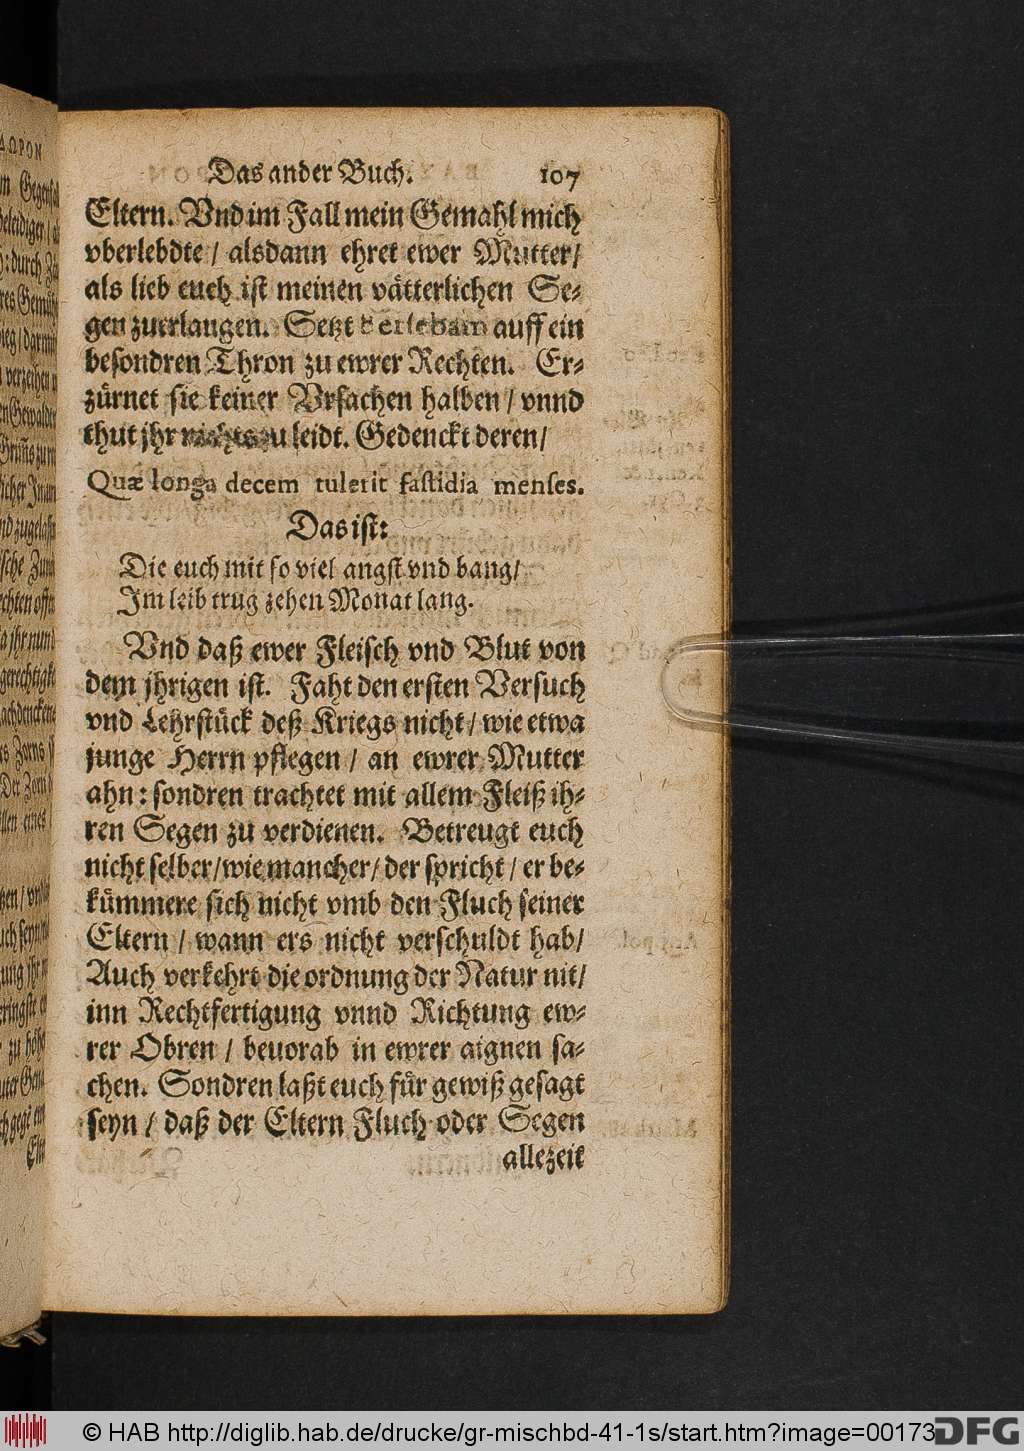 Das ander Buch. 107
Eltern. Vnd im Fall mein Gemahl mich
vberlebdte / alsdann ehret ewer Mutter/
als lieb euch ist meinen vätterlichen Se-
gen zuerlangen. Setzt auff ein
besondren Thron zu ewrer Rechten. Er-
zürnet sie keiner Vrsachen halben / vnnd
thut jhr nichts zu leidt. Gedenckt deren/
Quæ longa decem tulerit fastidia menses.
Das ist:
Die euch mit so viel angst vnd bang/
Im leib trug zehen Monat lang.
Vnd daß ewer Fleisch vnd Blut von
dem jhrigen ist. Faht den ersten Versuch
vnd Lehrstück deß Kriegs nicht / wie etwa
junge Herrn pflegen / an ewrer Mutter
ahn: sondren trachtet mit allem Fleiß ih-
ren Segen zu verdienen. Betreugt euch
nicht selber / wie mancher / der spricht / er be-
kümmere sich nicht vmb den Fluch seiner
Eltern / wann ers nicht verschuldt hab/
Auch verkehrt die ordnung der Natur nit/
inn Rechtfertigung vnnd Richtung ew-
rer Obren / beuorab in ewrer aignen sa-
chen. Sondren laßt euch für gewiß gesagt
seyn / daß der Eltern Fluch oder Segen
allezeit
© HAB http://diglib.hab.de/drucke/gr-mischbd-41-1s/start.htm?image=00173
DFG